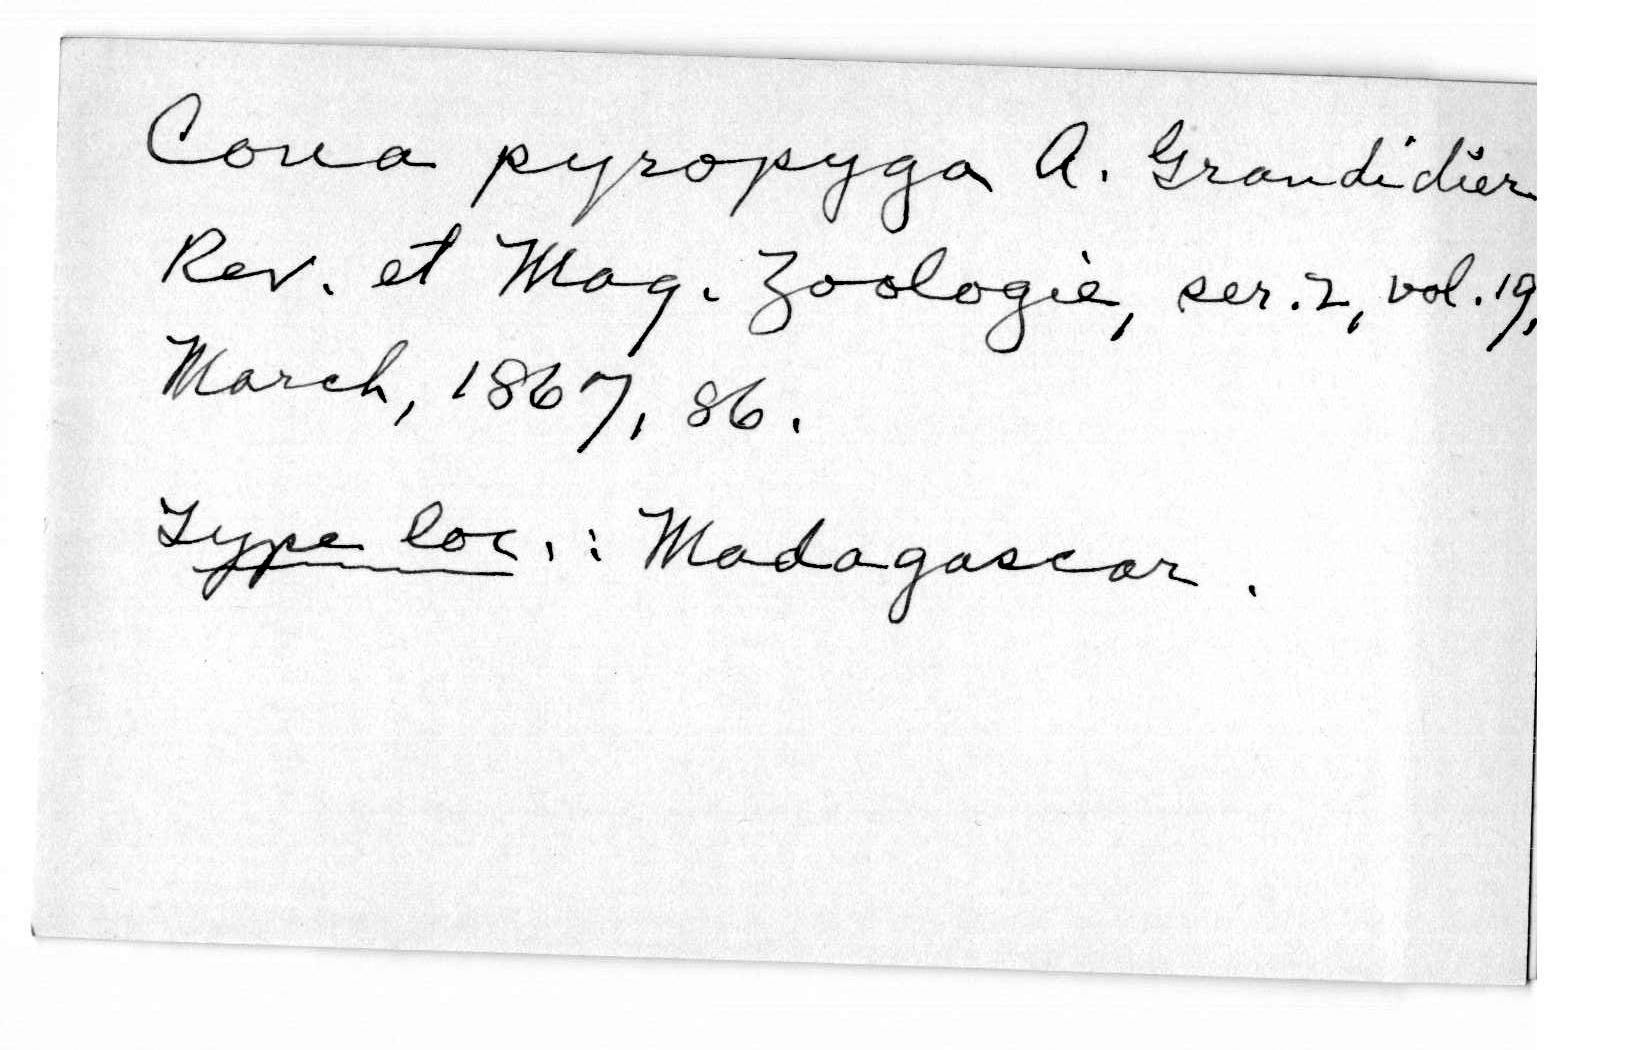 Coua pyropyga A. Grandidier
Rev. et Mag. Zoologie, ser. 2, vol. 19,
March, 1867, 86.
Type loc.: Madagascar.